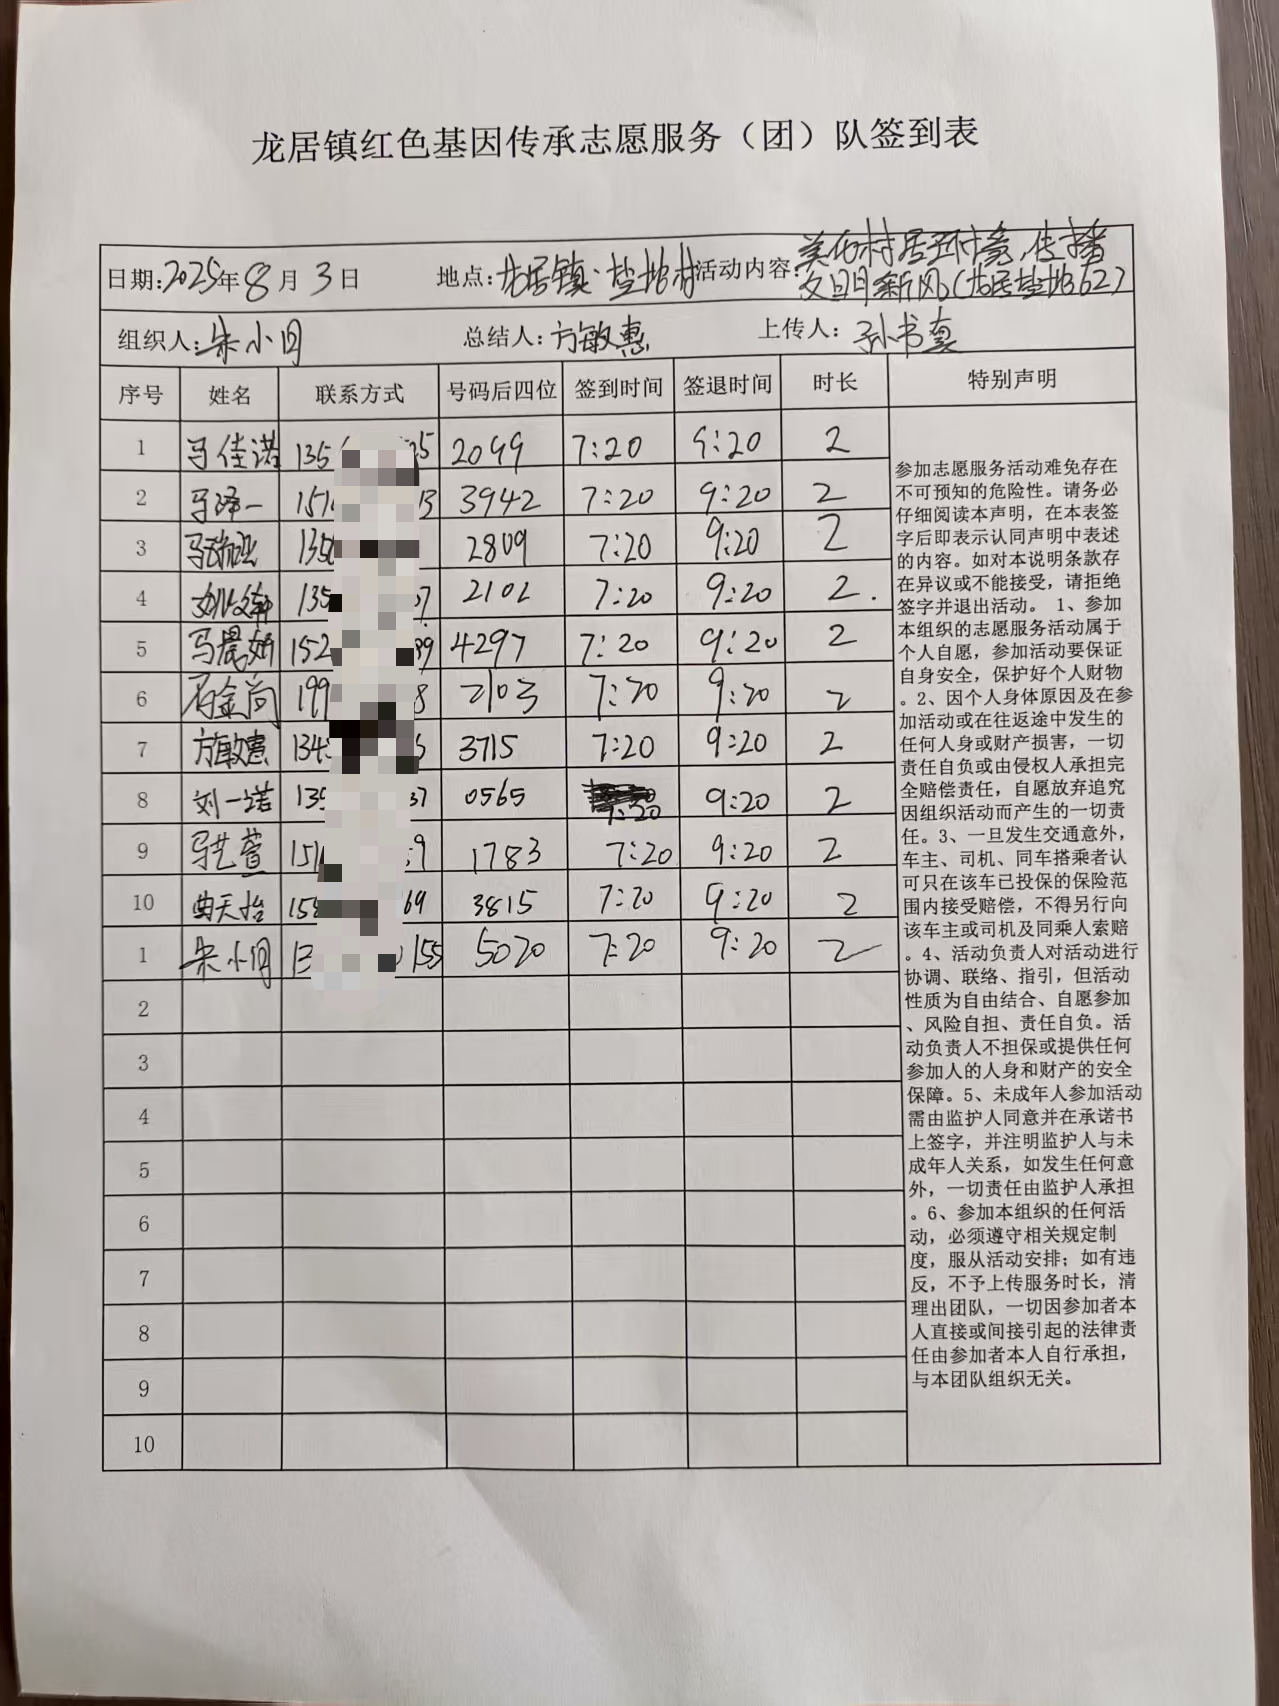 龙居镇红色基因传承志愿服务（团）队签到表
日期:2025年8月3日 地点:龙居镇·盐坨村 活动内容:美化村居环境,传播
文明新风(龙居盐坨62)
组织人:朱小同 总结人:方敏惠 上传人:孙书真
序号 姓名 联系方式 号码后四位 签到时间 签退时间 时长 特别声明
1 马佳诺 135 35 2099 7:20 9:20 2
2 马泽一 151 13 3942 7:20 9:20 2
3 马 135 2809 7:20 9:20 2
4 135 07 2102 7:20 9:20 2.
5 马晨妍 152 99 4297 7:20 9:20 2
6 石金尚 199 8 2103 7:20 9:20 2
7 方敏惠 134 3715 7:20 9:20 2
8 刘一诺 135 37 0565 7:20 9:20 2
9 马艺萱 151 59 1783 7:20 9:20 2
10 曲天怡 158 69 3815 7:20 9:20 2
1 朱小同 13 155 5020 7:20 9:20 2
2
3
4
5
6
7
8
9
10
参加志愿服务活动难免存在
不可预知的危险性。请务必
仔细阅读本声明，在本表签
字后即表示认同声明中表述
的内容。如对本说明条款存
在异议或不能接受，请拒绝
签字并退出活动。 1、参加
本组织的志愿服务活动属于
个人自愿，参加活动要保证
自身安全，保护好个人财物
。2、因个人身体原因及在参
加活动或在往返途中发生的
任何人身或财产损害，一切
责任自负或由侵权人承担完
全赔偿责任，自愿放弃追究
因组织活动而产生的一切责
任。3、一旦发生交通意外，
车主、司机、同车搭乘者认
可只在该车已投保的保险范
围内接受赔偿，不得另行向
该车主或司机及同乘人索赔
。4、活动负责人对活动进行
协调、联络、指引，但活动
性质为自由结合、自愿参加
、风险自担、责任自负。活
动负责人不担保或提供任何
参加人的人身和财产的安全
保障。5、未成年人参加活动
需由监护人同意并在承诺书
上签字，并注明监护人与未
成年人关系，如发生任何意
外，一切责任由监护人承担
。6、参加本组织的任何活
动，必须遵守相关规定制
度，服从活动安排；如有违
反，不予上传服务时长，清
理出团队，一切因参加者本
人直接或间接引起的法律责
任由参加者本人自行承担，
与本团队组织无关。